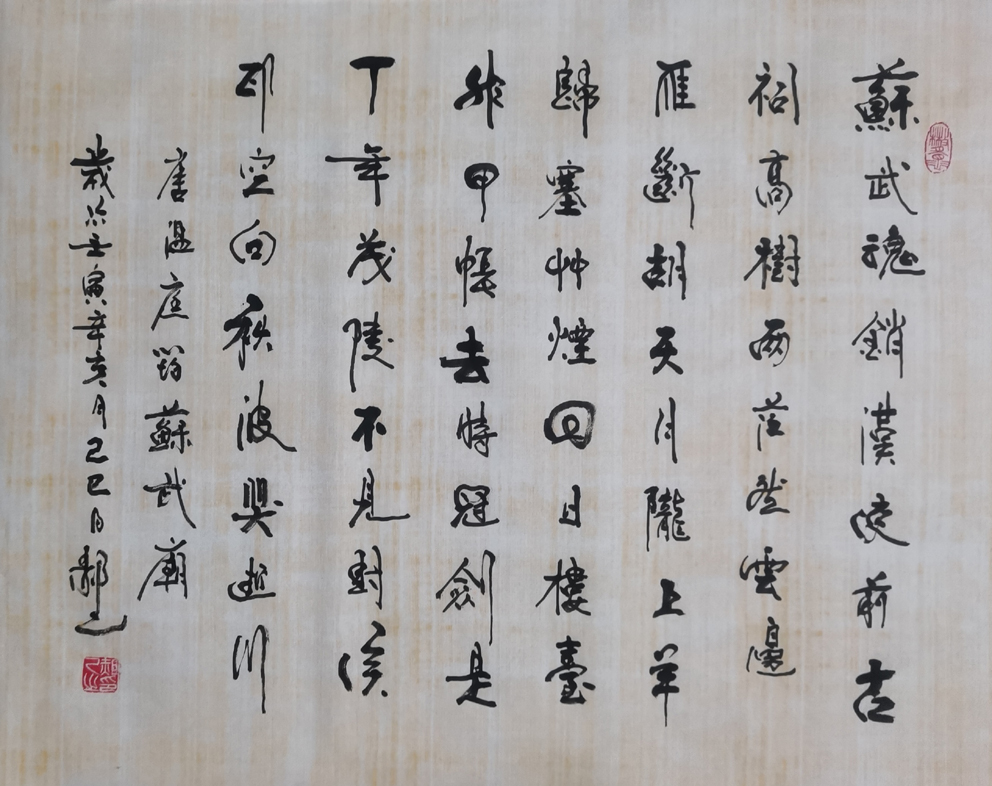 蘇武魂銷漢使前古
祠高樹兩茫然雲邊
雁斷胡天月隴上羊
歸塞艸煙回日樓臺
非甲帳去時冠劍是
丁年茂陵不見封侯
印空向秋波哭逝川
唐溫庭筠蘇武廟
歲次壬寅辛亥月己巳日郝